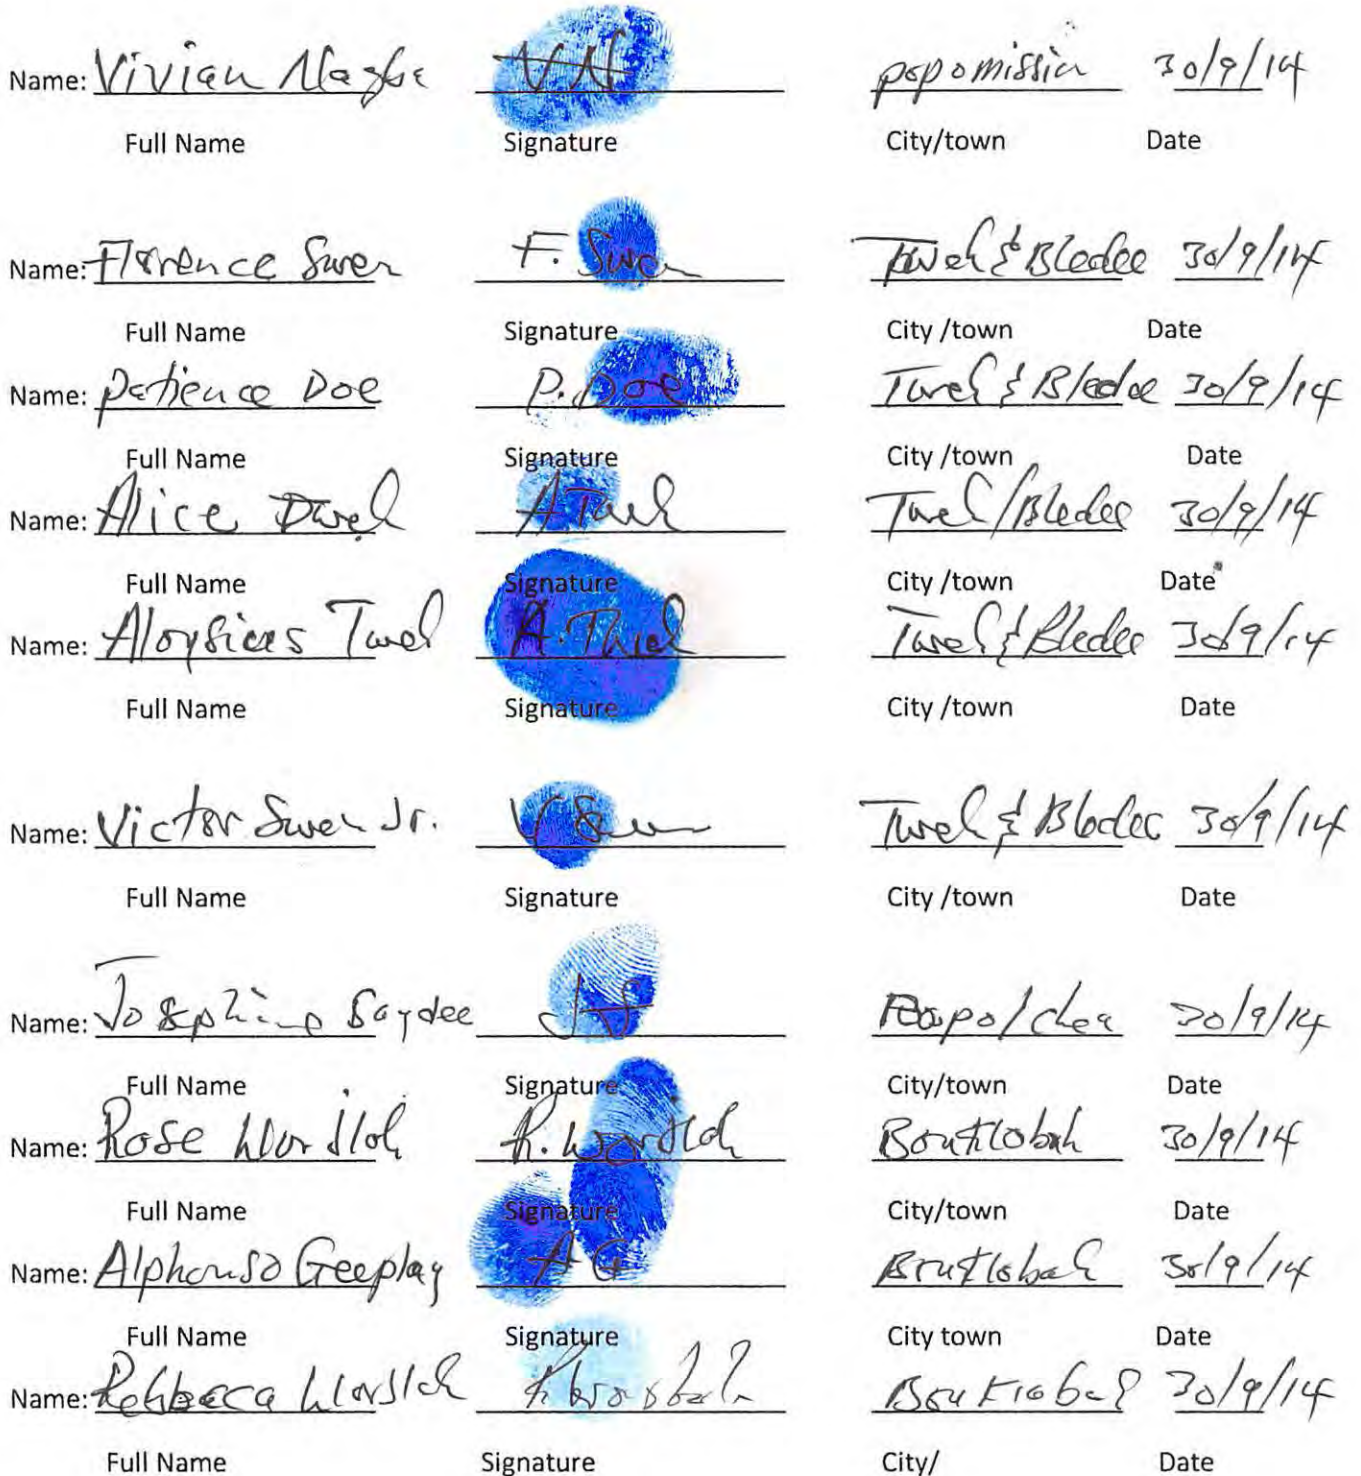 Name: Vivian Nagbe VN popomission 30/9/14
Full Name Signature City/town Date
Name: Florence Swen F. Swen Tweh & Bledee 30/9/14
Full Name Signature City /town Date
Name: Patience Doe P. Doe Tweh & Bledee 30/9/14
Full Name Signature City /town Date
Name: Alice Tweh A Tweh Tweh/Bledee 30/9/14
Full Name Signature City /town Date
Name: Aloysious Tweh A. Tweh Tweh & Bledee 30/9/14
Full Name Signature City /town Date
Name: Victor Swen Jr. V Swen Tweh & Bledee 30/9/14
Full Name Signature City /town Date
Name: Josephine Saydee JS 30/9/14
Full Name Signature City/town Date
Name: Rose Worjloh R. Worjloh 30/9/14
Full Name Signature City/town Date
Name: Alphonso Geeplay AG 30/9/14
Full Name Signature City town Date
Name: Rebbecca Worjloh 30/9/14
Full Name Signature City/ Date